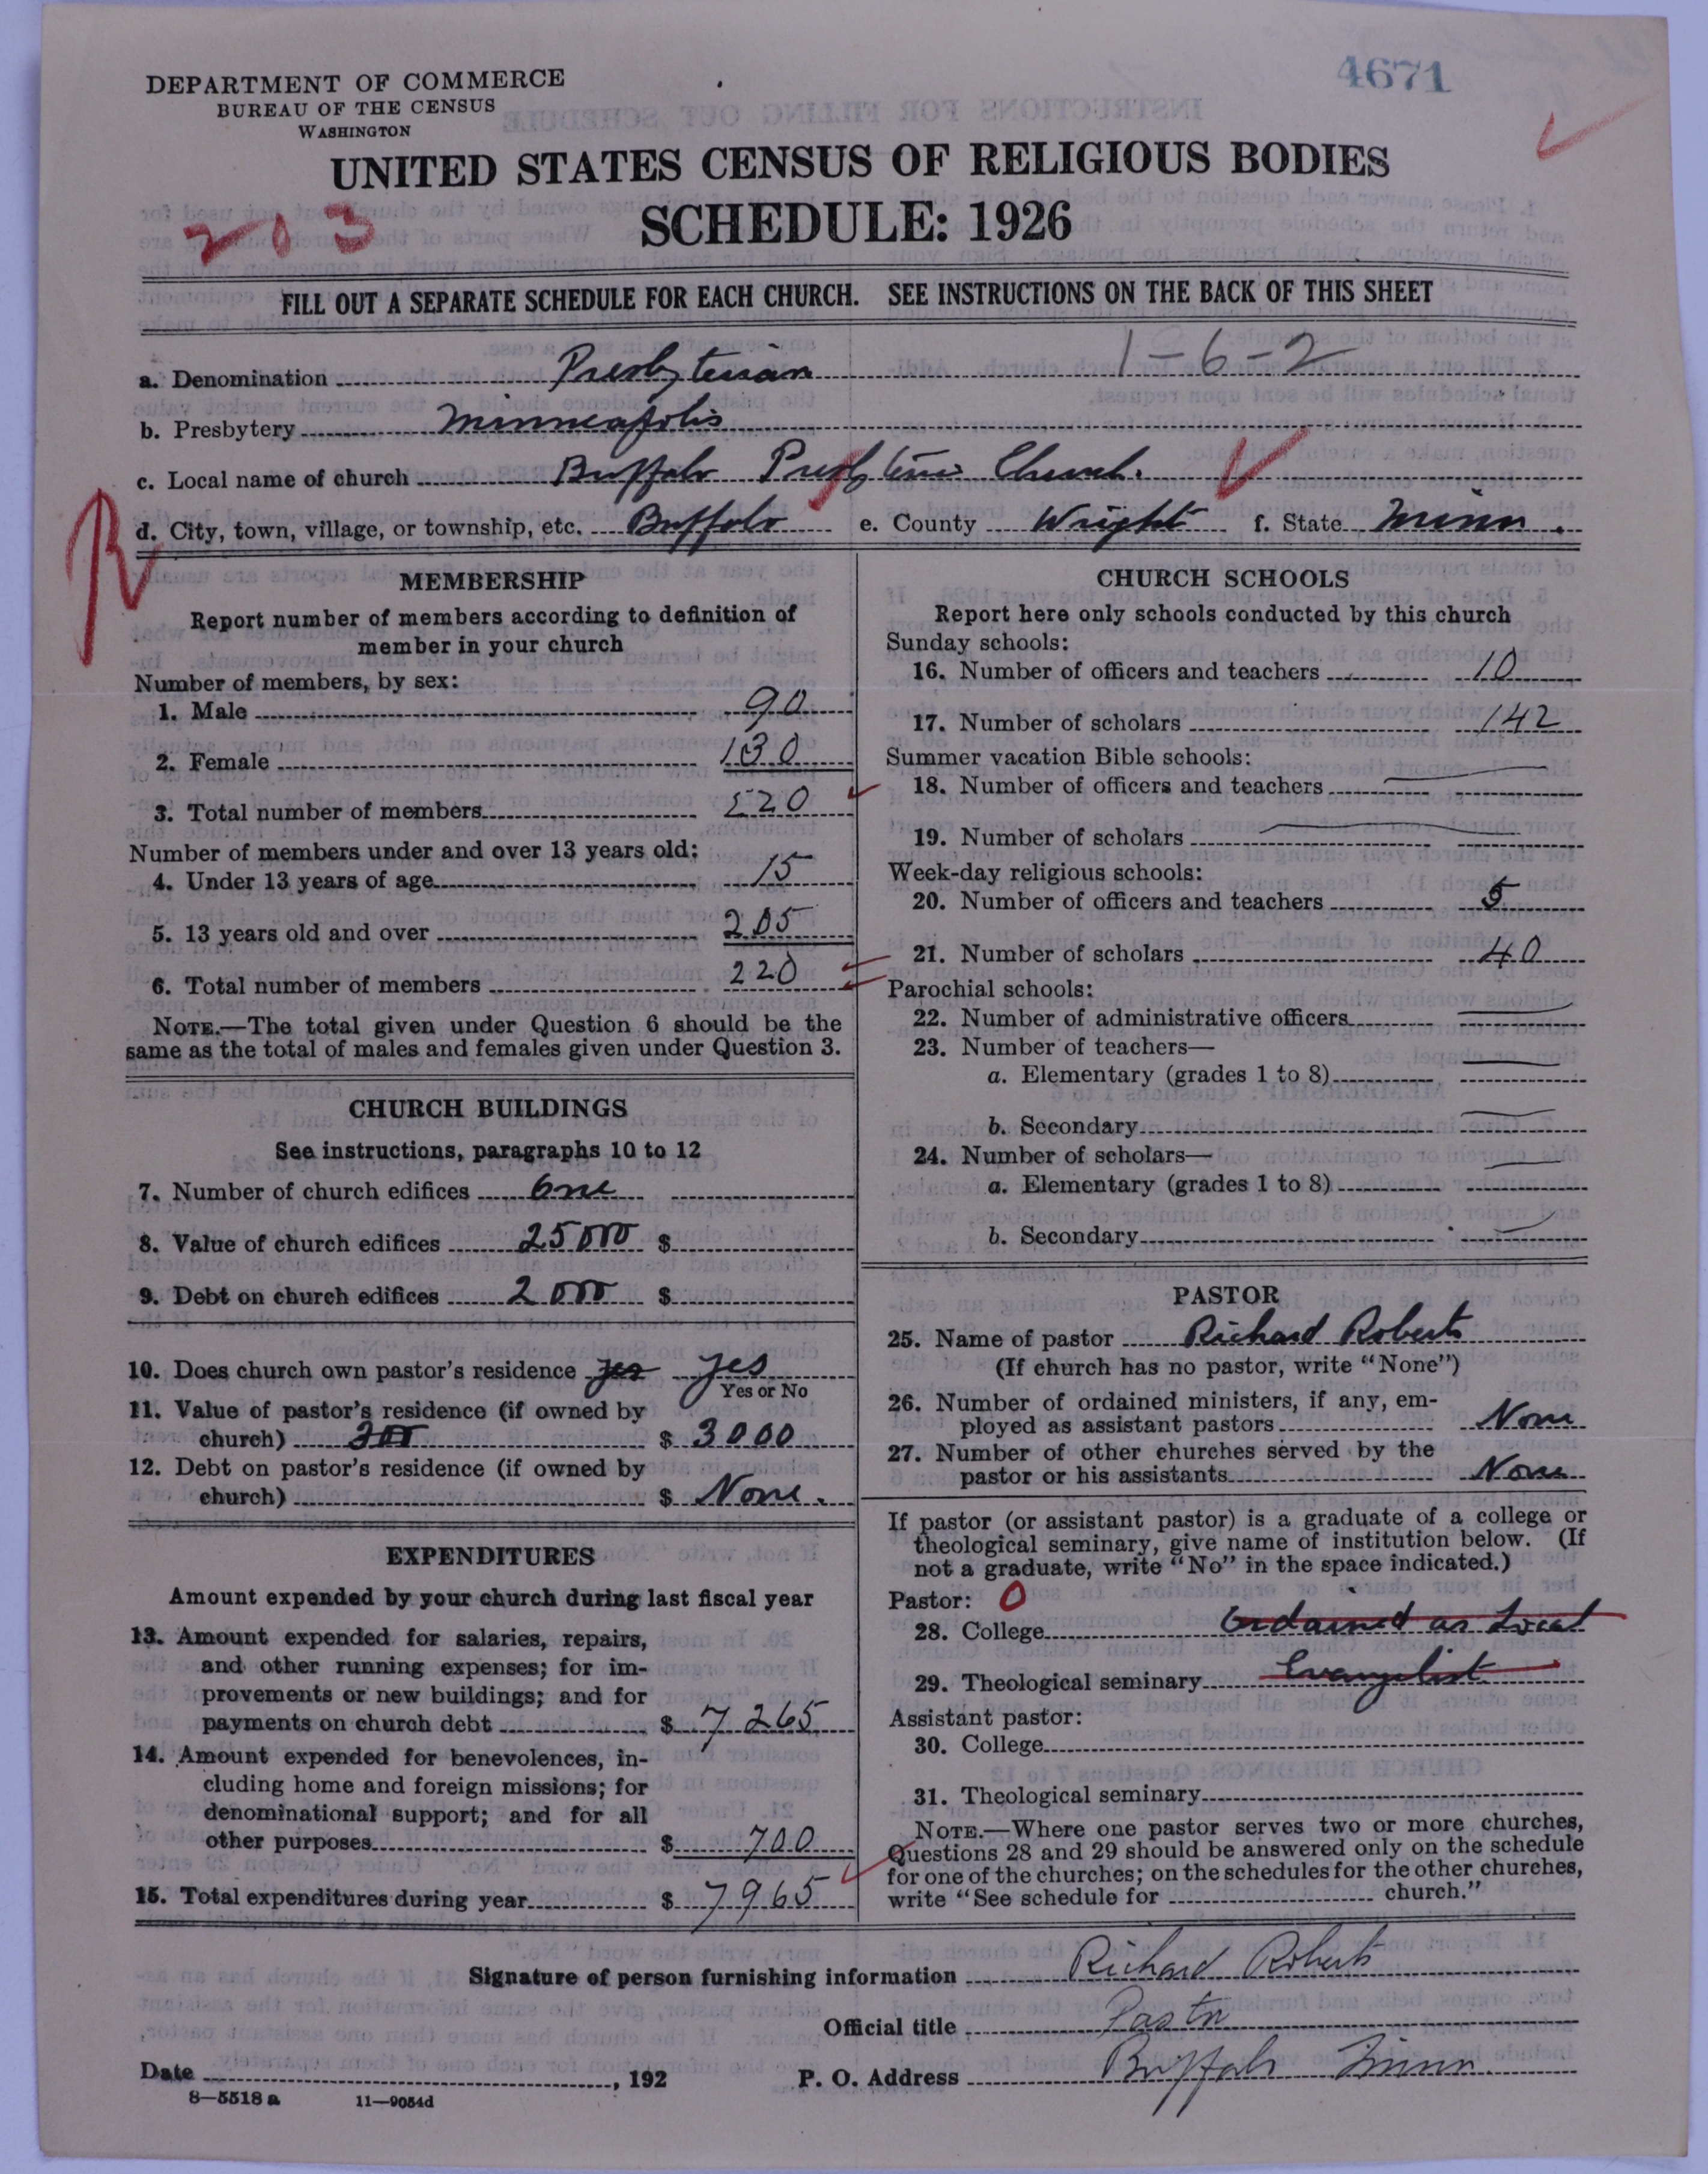 4671
DEPARTMENT OF COMMERCE
BUREAU OF THE CENSUS
WASHINGTON
UNITED STATES CENSUS OF RELIGIOUS BODIES
203
SCHEDULE: 1926
FILL OUT A SEPARATE SCHEDULE FOR EACH CHURCH. SEE INSTRUCTIONS ON THE BACK OF THIS SHEET
1-6-2
a. Denomination Presbyterian
b. Presbytery Minneapolis
c. Local name of church Buffalo Presbyterian Church.
d. City, town, village, or township, etc. Buffalo e. County Wright f. State Minn.
R
MEMBERSHIP
Report number of members according to definition of
member in your church
Number of members, by sex:
1. Male 90
2. Female 130
3. Total number of members 220
Number of members under and over 13 years old:
4. Under 13 years of age 15
5. 13 years old and over 205
6. Total number of members 220
NOTE.—The total given under Question 6 should be the
same as the total of males and females given under Question 3.
CHURCH BUILDINGS
See instructions, paragraphs 10 to 12
7. Number of church edifices One
8. Value of church edifices 25000 $
9. Debt on church edifices 2000 $
10. Does church own pastor's residence yes yes
Yes or No
11. Value of pastor's residence (if owned by
church) 300 $ 3000
12. Debt on pastor's residence (if owned by
church) $ None.
EXPENDITURES
Amount expended by your church during last fiscal year
13. Amount expended for salaries, repairs,
and other running expenses; for im-
provements or new buildings; and for
payments on church debt $ 7265
14. Amount expended for benevolences, in-
cluding home and foreign missions; for
denominational support; and for all
other purposes $ 700
15. Total expenditures during year $ 7965
CHURCH SCHOOLS
Report here only schools conducted by this church
Sunday schools:
16. Number of officers and teachers 10
17. Number of scholars 142
Summer vacation Bible schools:
18. Number of officers and teachers
19. Number of scholars
Week-day religious schools:
20. Number of officers and teachers 5
21. Number of scholars 40
Parochial schools:
22. Number of administrative officers
23. Number of teachers—
a. Elementary (grades 1 to 8)
b. Secondary
24. Number of scholars—
a. Elementary (grades 1 to 8)
b. Secondary
PASTOR
25. Name of pastor Richard Roberts
(If church has no pastor, write "None")
26. Number of ordained ministers, if any, em-
ployed as assistant pastors None
27. Number of other churches served by the
pastor or his assistants None
If pastor (or assistant pastor) is a graduate of a college or
theological seminary, give name of institution below. (If
not a graduate, write "No" in the space indicated.)
Pastor: O
28. College Ordained as Local
29. Theological seminary Evangelist
Assistant pastor:
30. College
31. Theological seminary
NOTE.—Where one pastor serves two or more churches,
Questions 28 and 29 should be answered only on the schedule
for one of the churches; on the schedules for the other churches,
write "See schedule for church."
Signature of person furnishing information Richard Roberts
Official title Pastor
Date , 192 P. O. Address Buffalo Minn.
8—5518 a 11—9054d